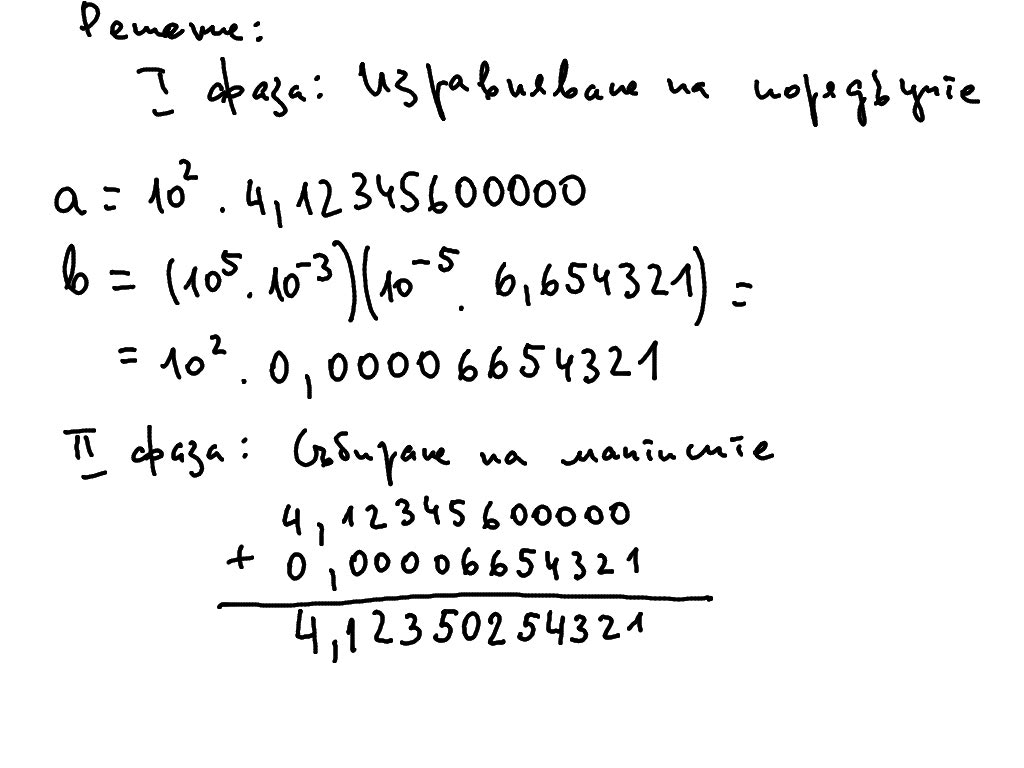 Решение:
I фаза: Изравняване на порядъците
a = 10² . 4,12345600000
b = (10⁵ . 10⁻³)(10⁻⁵ . 6,654321) =
= 10² . 0,00006654321
II фаза: Събиране на мантисите
4,12345600000
+ 0,00006654321
4,12350254321